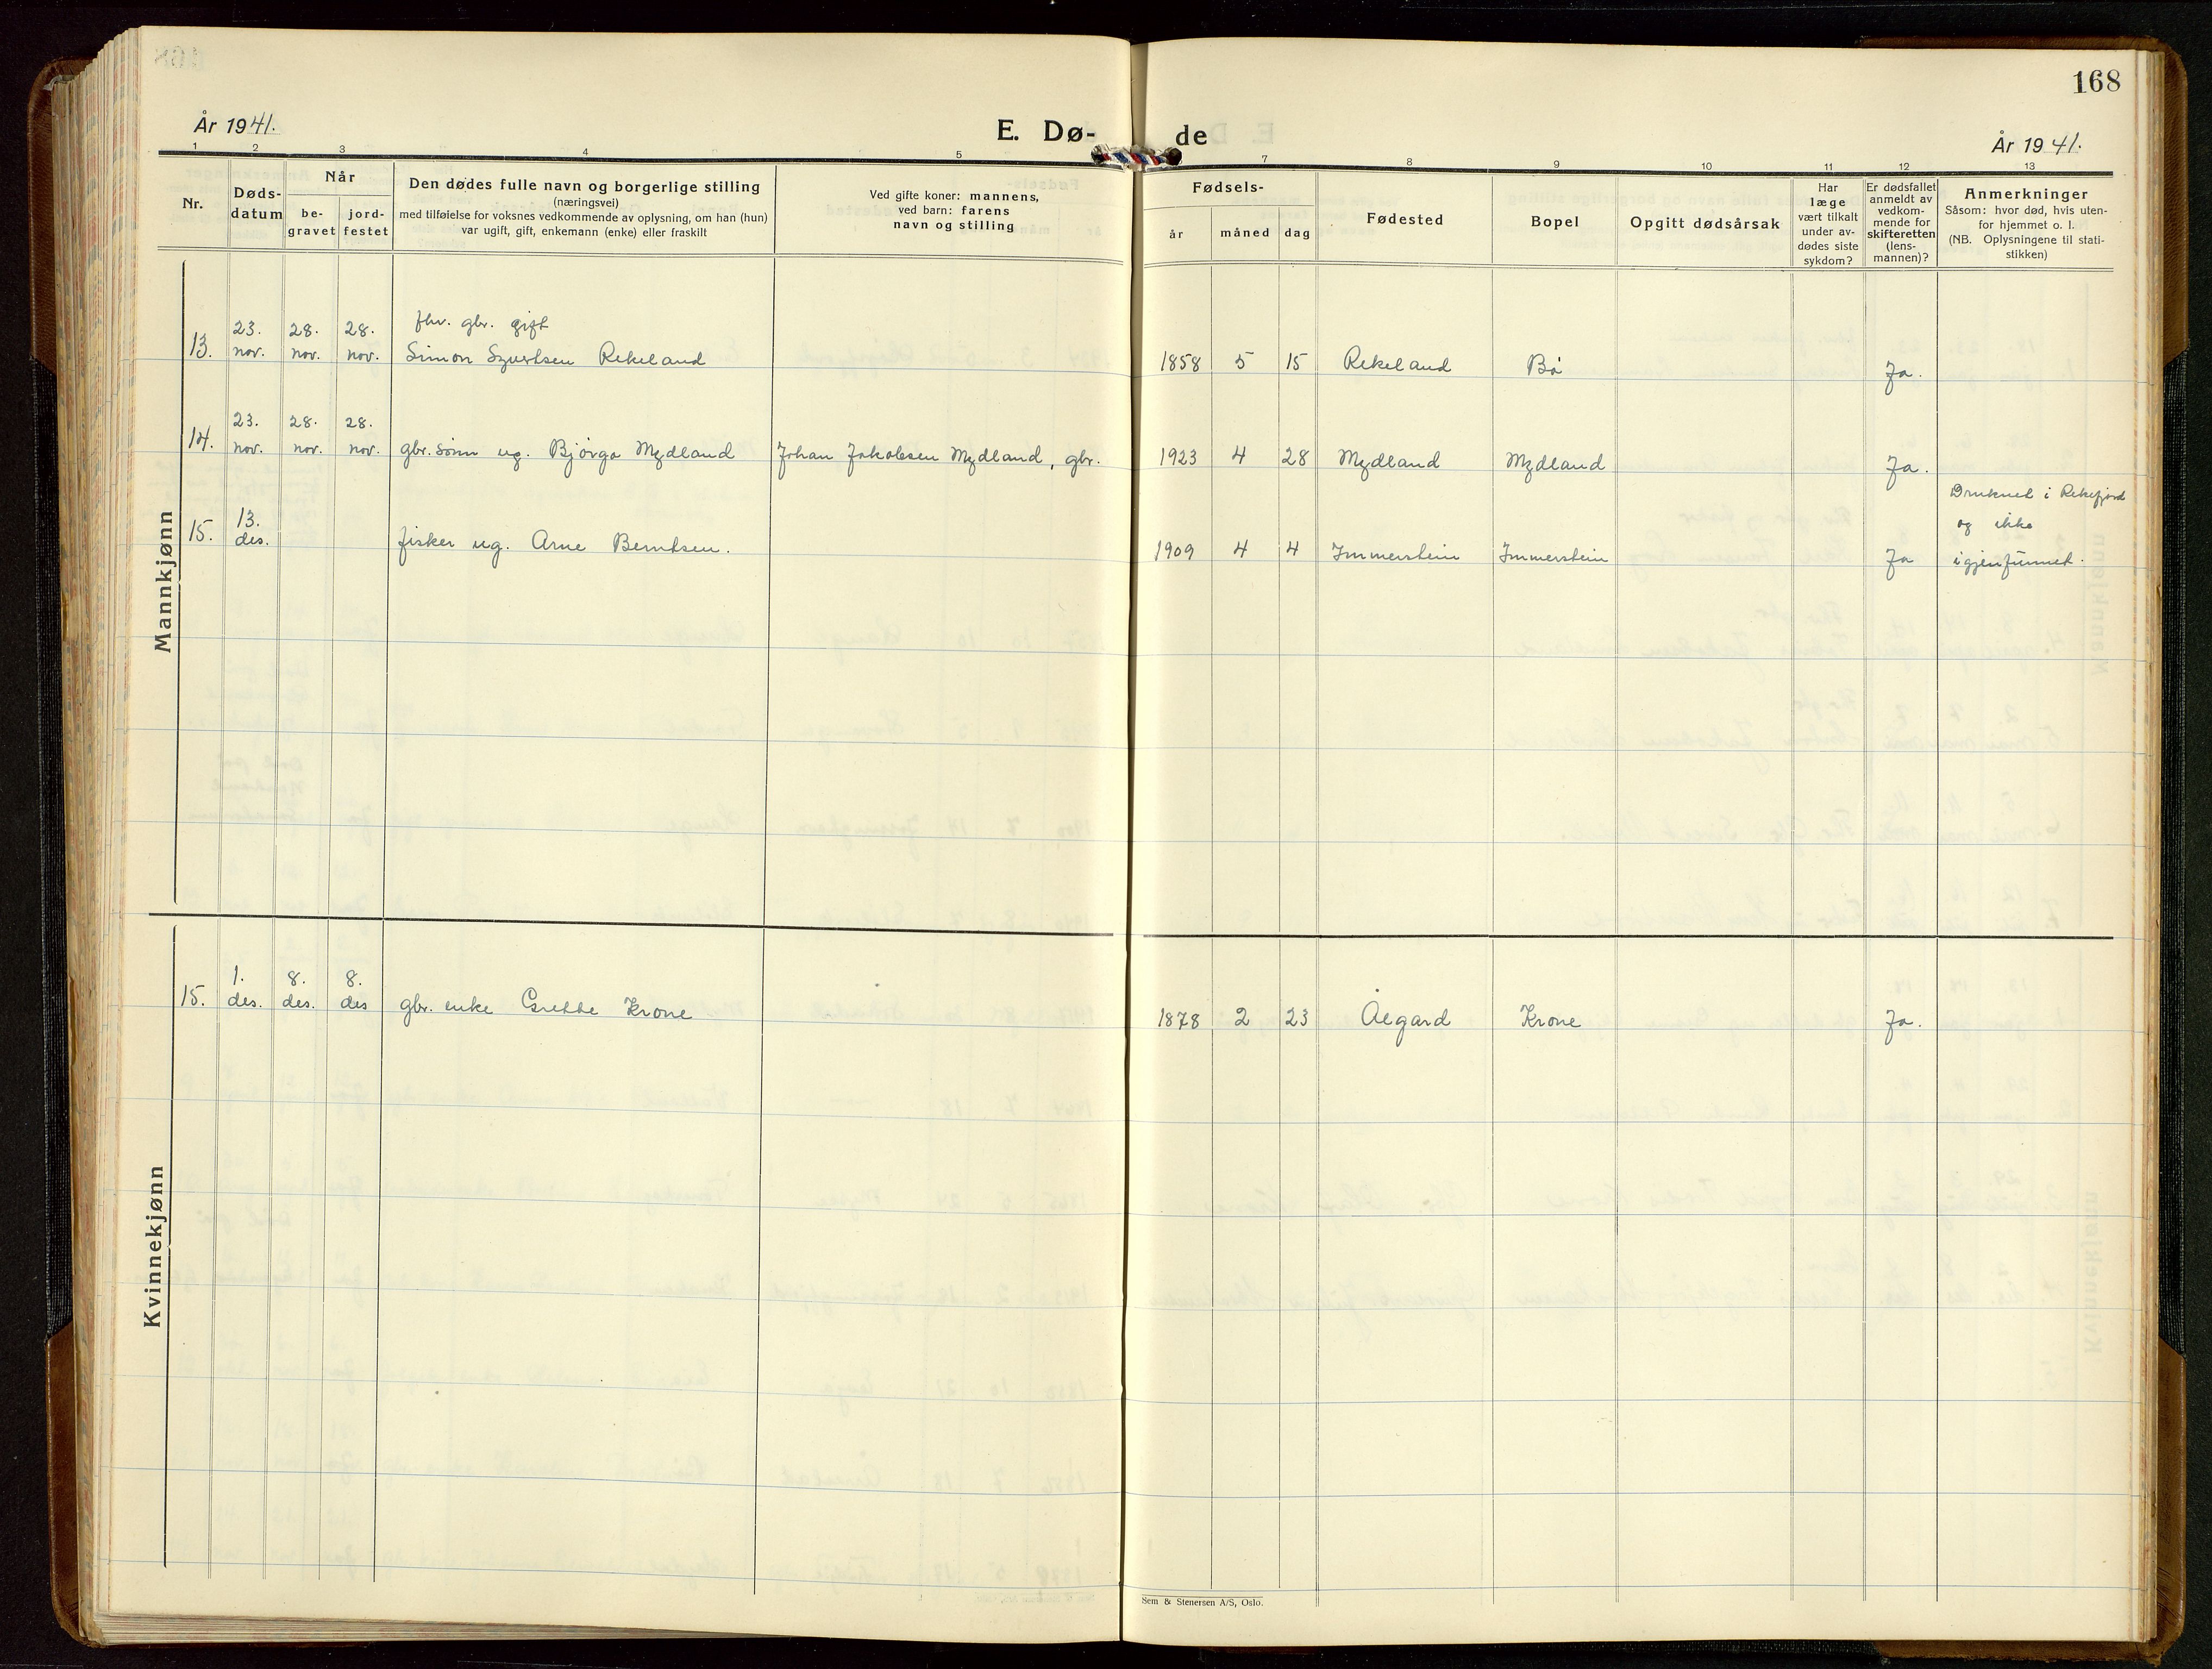 168
År 1941.
E. Dø-
de
År 1941.
1 2 3 4 5
7 8 9 10 11 12 13
Nr.
Døds-
datum
Når
be-
gravet
jord-
festet
Den dødes fulle navn og borgerlige stilling
(næringsvei)
med tilføielse for voksnes vedkommende av oplysning, om han (hun)
var ugift, gift, enkemann (enke) eller fraskilt
Ved gifte koner: mannens,
ved barn: farens
navn og stilling
Fødsels-
år
måned
dag
Fødested
Bopel
Opgitt dødsårsak
Har
læge
vært tilkalt
under av-
dødes siste
sykdom?
Er dødsfallet
anmeldt av
vedkom-
mende for
skifteretten
(lens-
mannen)?
Anmerkninger
Såsom: hvor død, hvis uten-
for hjemmet o. l.
(NB. Oplysningene til stati-
stikken)
Mannkjønn
23. 28. 28. fhv. gbr. gift
13. nov. nov. nov. Simon Syvertsen Rekeland 1858 5 15 Rekeland Bø Ja.
23. 28. 28.
14. nov. nov. nov. gbr. sønn ug. Bjørgo Mydland Johan Jakobsen Mydland, gbr. 1923 4 28 Mydland Mydland Ja.
13. Druknet i Rekefjord
og ikke
15. des. fisker ug. Arne Berntsen. 1909 4 4 Immerstein Immerstein Ja igjenfunnet.
Kvinnekjønn
1. 8. 8.
15. des. des. des gbr. enke Grethe Krone 1878 2 23 Ålgård Krone Ja.
Sem & Stenersen A/S, Oslo.